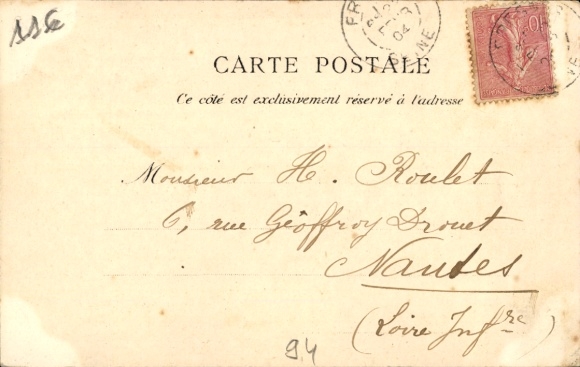 SSG
CARTE POSTALE
Ce côté est exclusivement réservé à l'adresse
Monsieur H. Roulet
6, rue Géoffroy Drouet
Nantes
(Loire Infre)
94